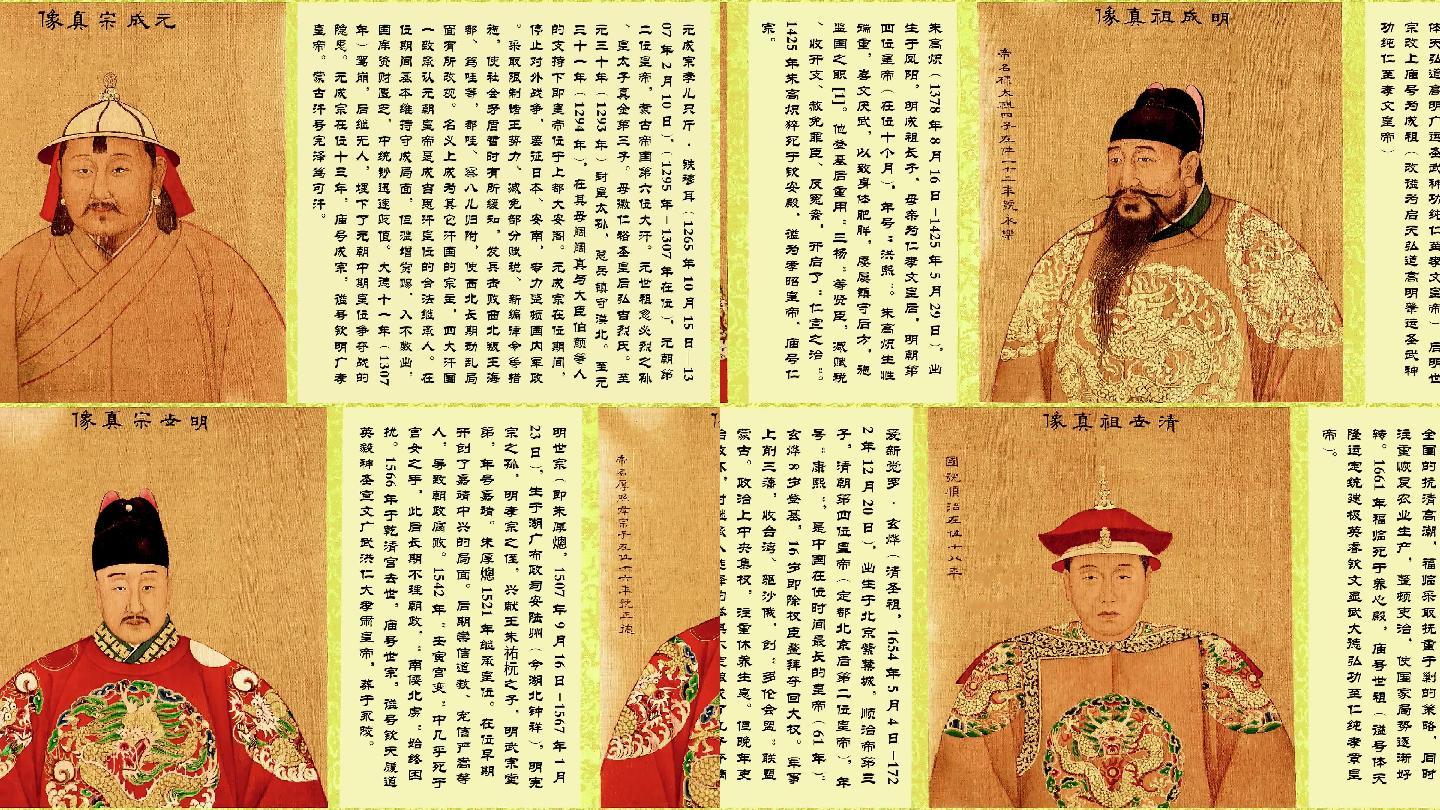 像真宗成元
元成宗孛儿只斤·铁穆耳（1265年10月15日—13
07年2月10日），（1295年—1307年在位），元朝第
二位皇帝，蒙古帝国第六位大汗。元世祖忽必烈之孙
，皇太子真金第三子。母徽仁裕圣皇后弘吉烈氏。至
元三十年（1293年）封皇太孙，总兵镇守漠北。至元
三十一年（1294年），在其母阔阔真与大臣伯颜等人
的支持下即皇帝位于上都大安阁。元成宗在位期间，
停止对外战争，罢征日本、安南，专力整顿国内军政
。采取限制诸王势力、减免部分赋税、新编律令等措
施，使社会矛盾暂时有所缓和。发兵击败西北叛王海
都、笃哇等，都哇、察八儿归附，使西北长期动乱局
面有所改观。名义上成为其它汗国的宗主，四大汗国
一致承认元朝皇帝是成吉思汗皇位的合法继承人。在
位期间基本维持守成局面，但滥增赏赐，入不敷出，
国库资财匮乏，中统钞迅速贬值。大德十一年（1307
年）驾崩，后继无人，埋下了元朝中期皇位争夺战的
隐患。元成宗在位十三年，庙号成宗，谥号钦明广孝
皇帝。蒙古汗号完泽笃可汗。
朱高炽（1378年8月16日—1425年5月29日），出
生于凤阳，明成祖长子，母亲为仁孝文皇后，明朝第
四位皇帝（在位十个月），年号"洪熙"。朱高炽生性
端重，喜文厌武，以致身体肥胖，屡屡镇守后方，施
监国之职[1]。他登基后重用"三杨"等贤臣，减赋税
、收开支、赦免罪臣、反冤案，开启了"仁宣之治"。
1425年朱高炽猝死于钦安殿，谥为孝昭皇帝，庙号仁
宗。
像真祖成明
帝名棣太祖四子在位二十二年號永樂
体天弘道高明广运圣武神功纯仁至孝文皇帝），后明世
宗改上庙号为成祖（改谥为启天弘道高明肇运圣武神
功纯仁至孝文皇帝）
像真宗世明
明世宗（即朱厚熜，1507年9月16日—1567年1月
23日），生于湖广布政司安陆州（今湖北钟祥），明宪
宗之孙，明孝宗之侄，兴献王朱祐杬之子，明武宗堂
弟，年号嘉靖。朱厚熜1521年继承皇位。在位早期
开创了嘉靖中兴的局面。后期崇信道教、宠信严嵩等
人，导致朝政腐败。1542年"壬寅宫变"中几乎死于
宫女之手，此后长期不理朝政，"南倭北虏"始终困
扰。1566年于乾清宫去世，庙号世宗，谥号钦天履道
英毅神圣宣文广武洪仁大孝肃皇帝，葬于永陵。
帝名厚照孝宗子在位十六年號正德
爱新觉罗·玄烨（清圣祖，1654年5月4日—172
2年12月20日），出生于北京紫禁城，顺治帝第三
子，清朝第四位皇帝（定都北京后第二位皇帝），年
号"康熙"，是中国在位时间最长的皇帝（61年）。
玄烨8岁登基，16岁即除权臣鳌拜夺回大权。军事
上削三藩，收台湾、驱沙俄，创"多伦会盟"联盟
蒙古。政治上中央集权，注重休养生息。但晚年吏
像真祖世清
國號順治在位十八年
全国的抗清高潮，福临采取抚重于剿的策略，同时
注重恢复农业生产，整顿吏治，使国家局势逐渐好
转。1661年福临死于养心殿，庙号世祖（谥号体天
隆运定统建极英睿钦文显武大德弘功至仁纯孝章皇
帝）。